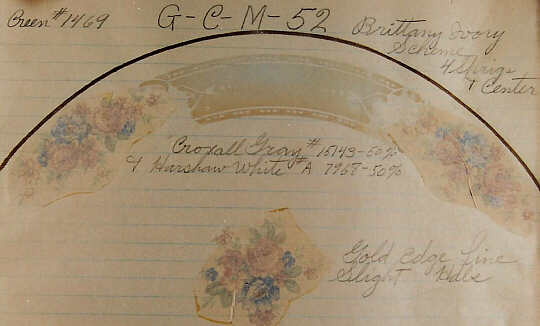 Green #1469
G-C-M-52
Brittany Ivory
Scheme
4 Sprigs
+ Center
Croxall Gray # 15143-50%
+ Harshaw White # A 7968-50%
Gold edge line
Slight Hdls